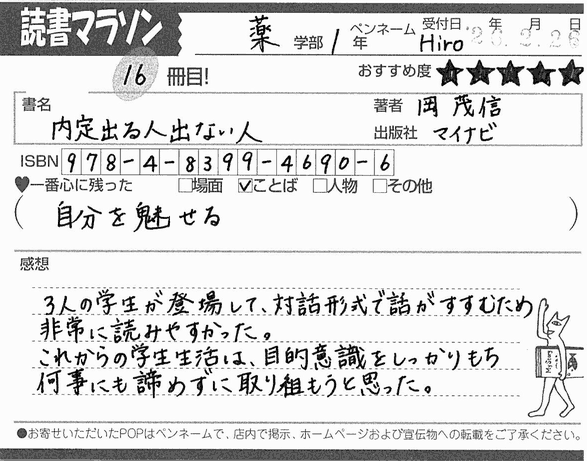 読書マラソン
薬 学部 1 年 ペンネーム Hiro 受付日 '26. 2. 26 年 月 日
16 冊目! おすすめ度 ★★★★★
書名 内定出る人出ない人
著者 岡 茂信
出版社 マイナビ
ISBN 978-4-8399-4690-6
♥一番心に残った □場面 ☑ことば □人物 □その他
( 自分を魅せる )
感想
3人の学生が登場して、対話形式で話がすすむため
非常に読みやすかった。
これからの学生生活は、目的意識をしっかりもち
何事にも諦めずに取り組もうと思った。
●お寄せいただいたPOPはペンネームで、店内で掲示、ホームページおよび宣伝物への転載をご了承ください。